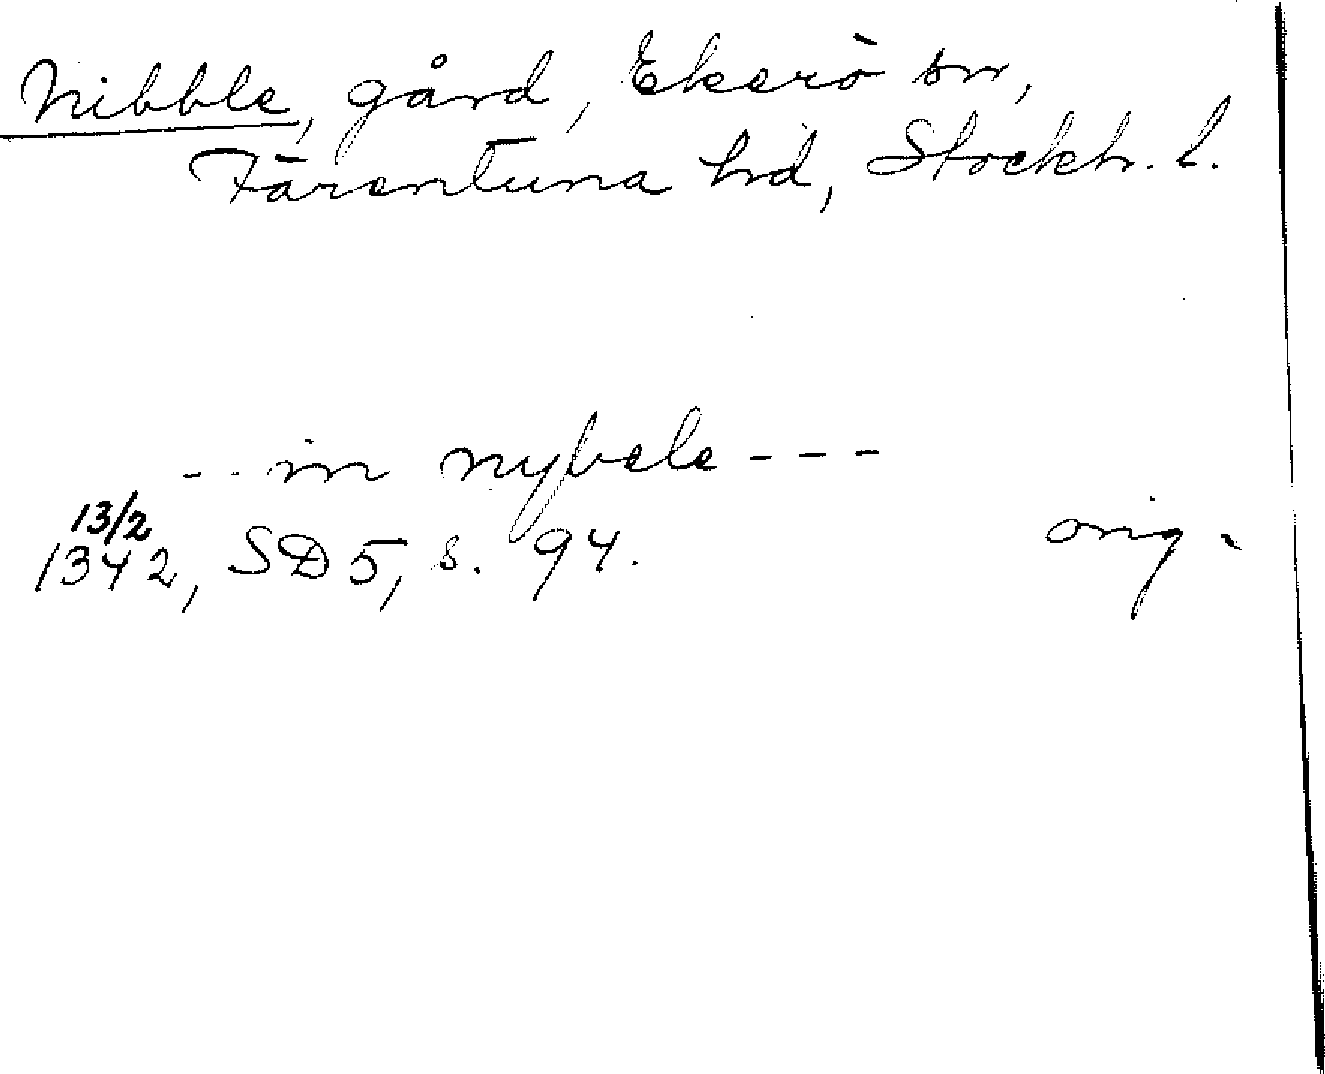 Nibble, gård, Ekerö sn,
Färentuna hd, Stockh. l.
-- in nybele ---
13/2
1342, SD 5, s. 94.
orig.